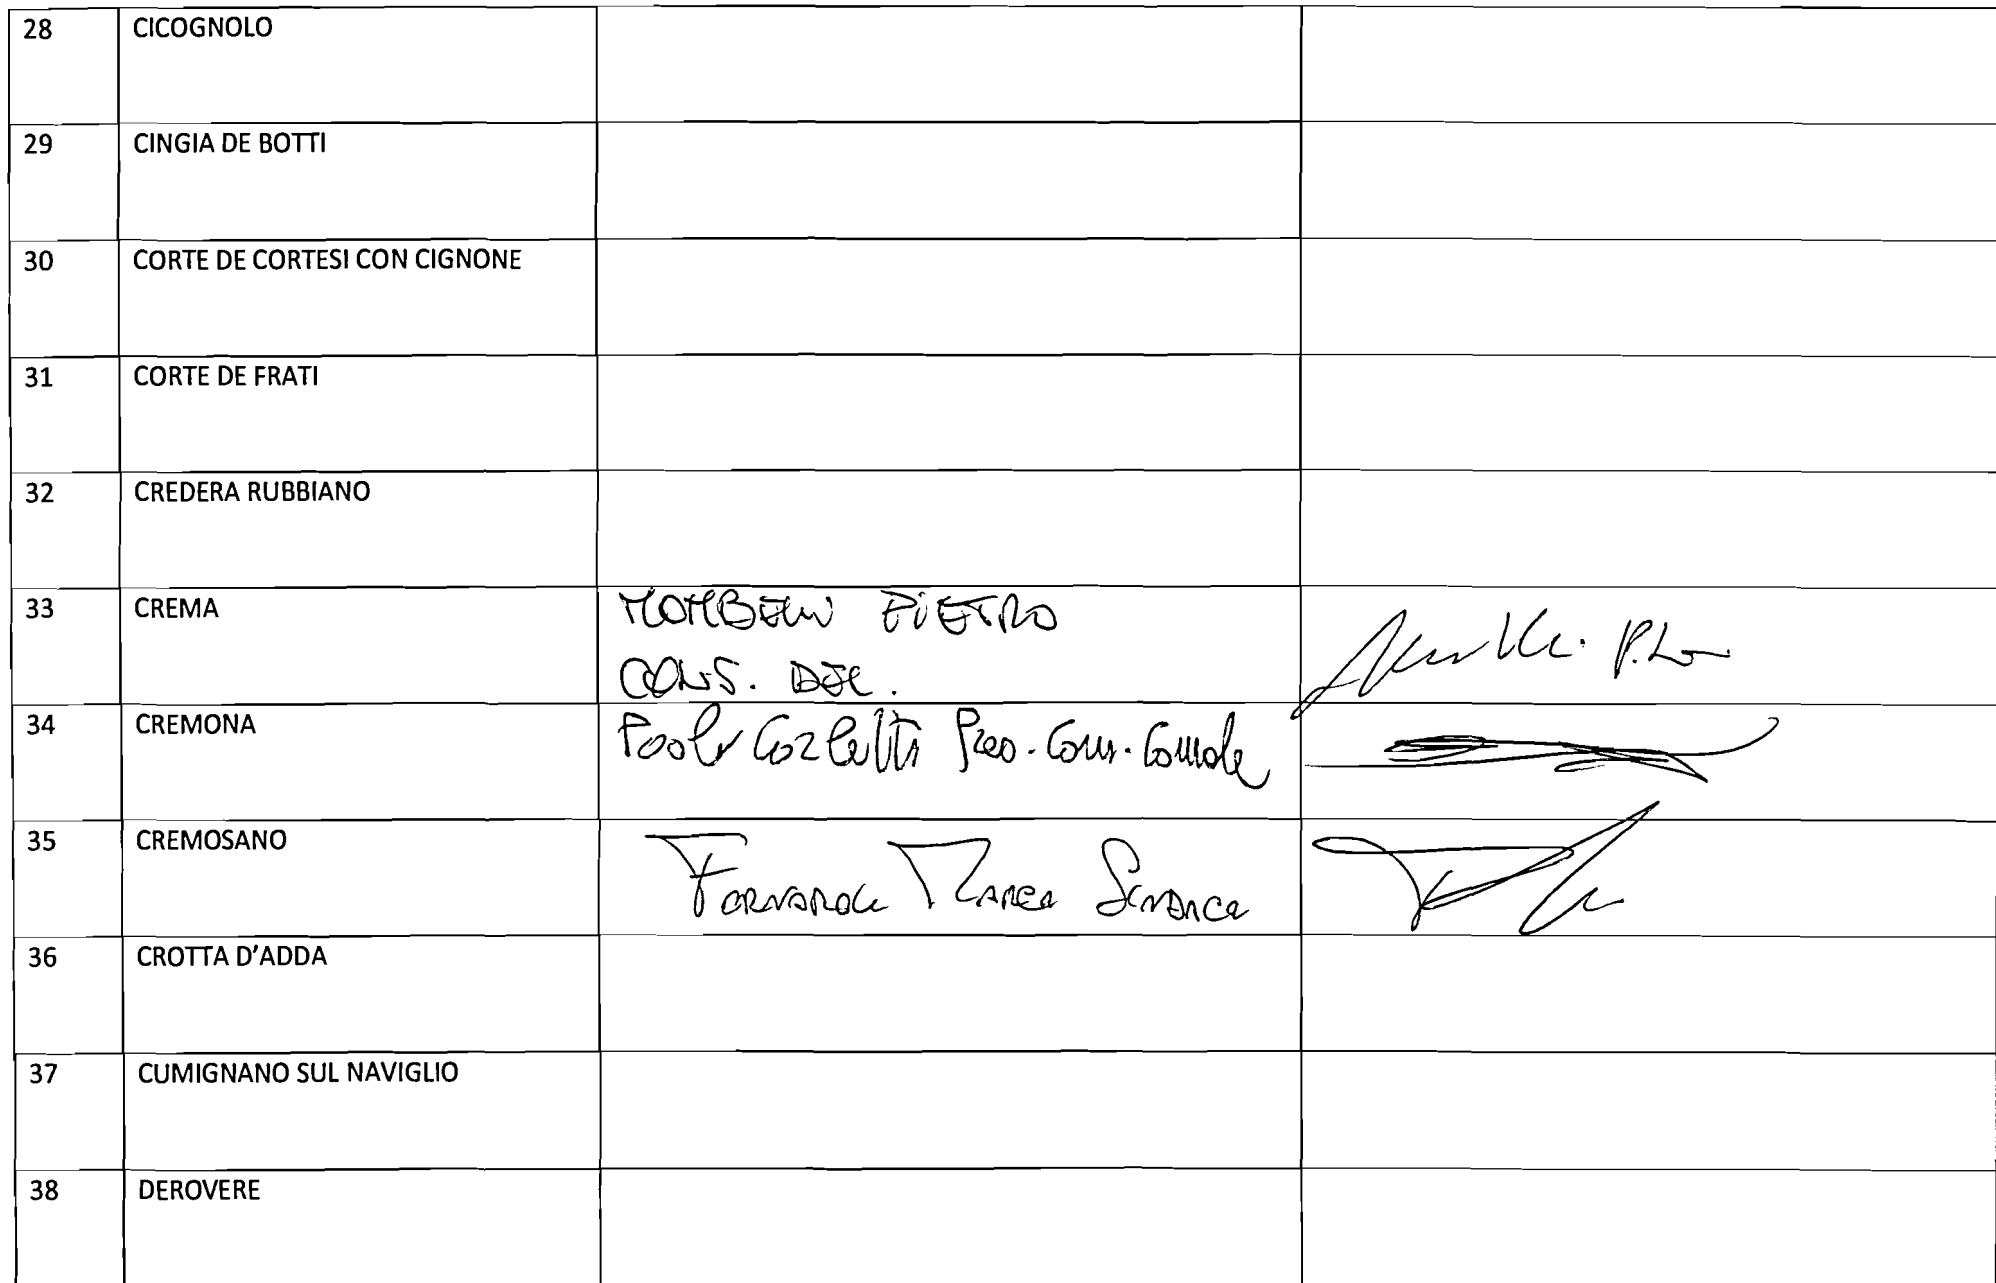 28 CICOGNOLO
29 CINGIA DE BOTTI
30 CORTE DE CORTESI CON CIGNONE
31 CORTE DE FRATI
32 CREDERA RUBBIANO
33 CREMA MOMBELLI PIETRO
CONS. DEL.
34 CREMONA Paolo Carletti Pres. Cons. Comale
35 CREMOSANO FORNAROLI MARCO SINDACO
36 CROTTA D'ADDA
37 CUMIGNANO SUL NAVIGLIO
38 DEROVERE